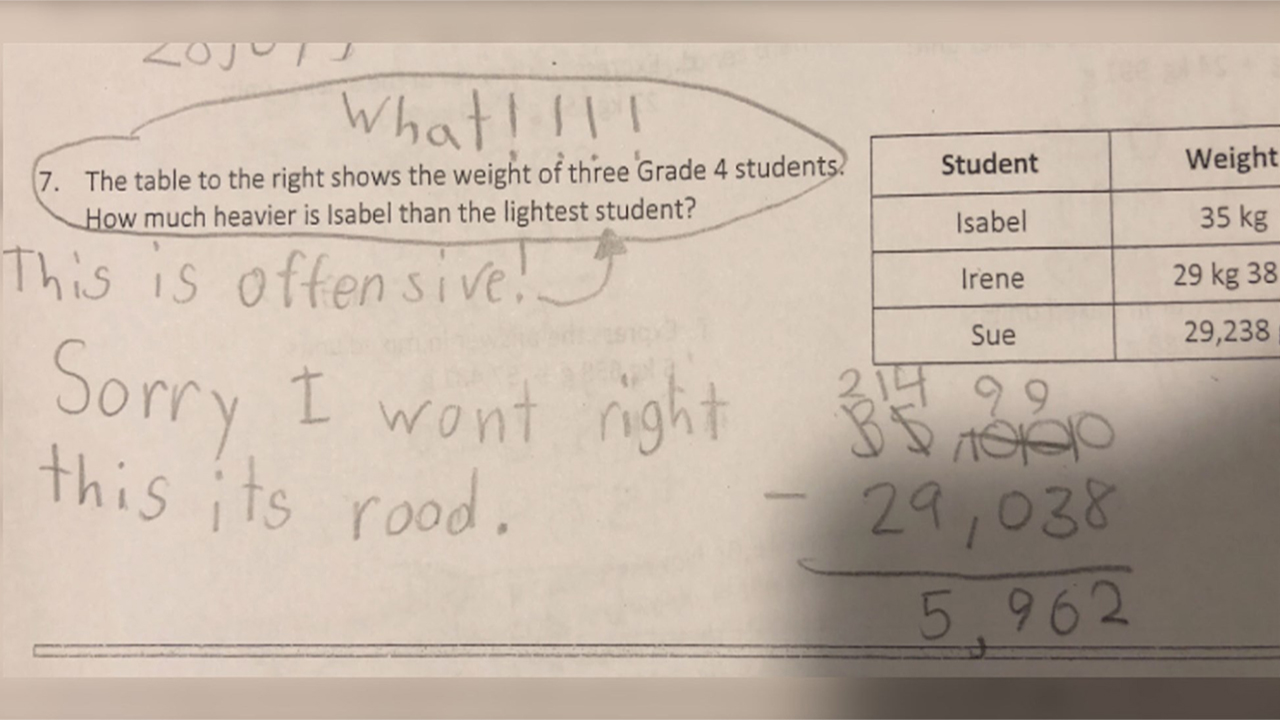 What!!!!
7. The table to the right shows the weight of three Grade 4 students.
How much heavier is Isabel than the lightest student?
This is offensive!
Sorry I wont right
this its rood.
Student Weight
Isabel 35 kg
Irene 29 kg 38
Sue 29,238
2 14 9 9
35 10 10 10
- 29,038
5,962